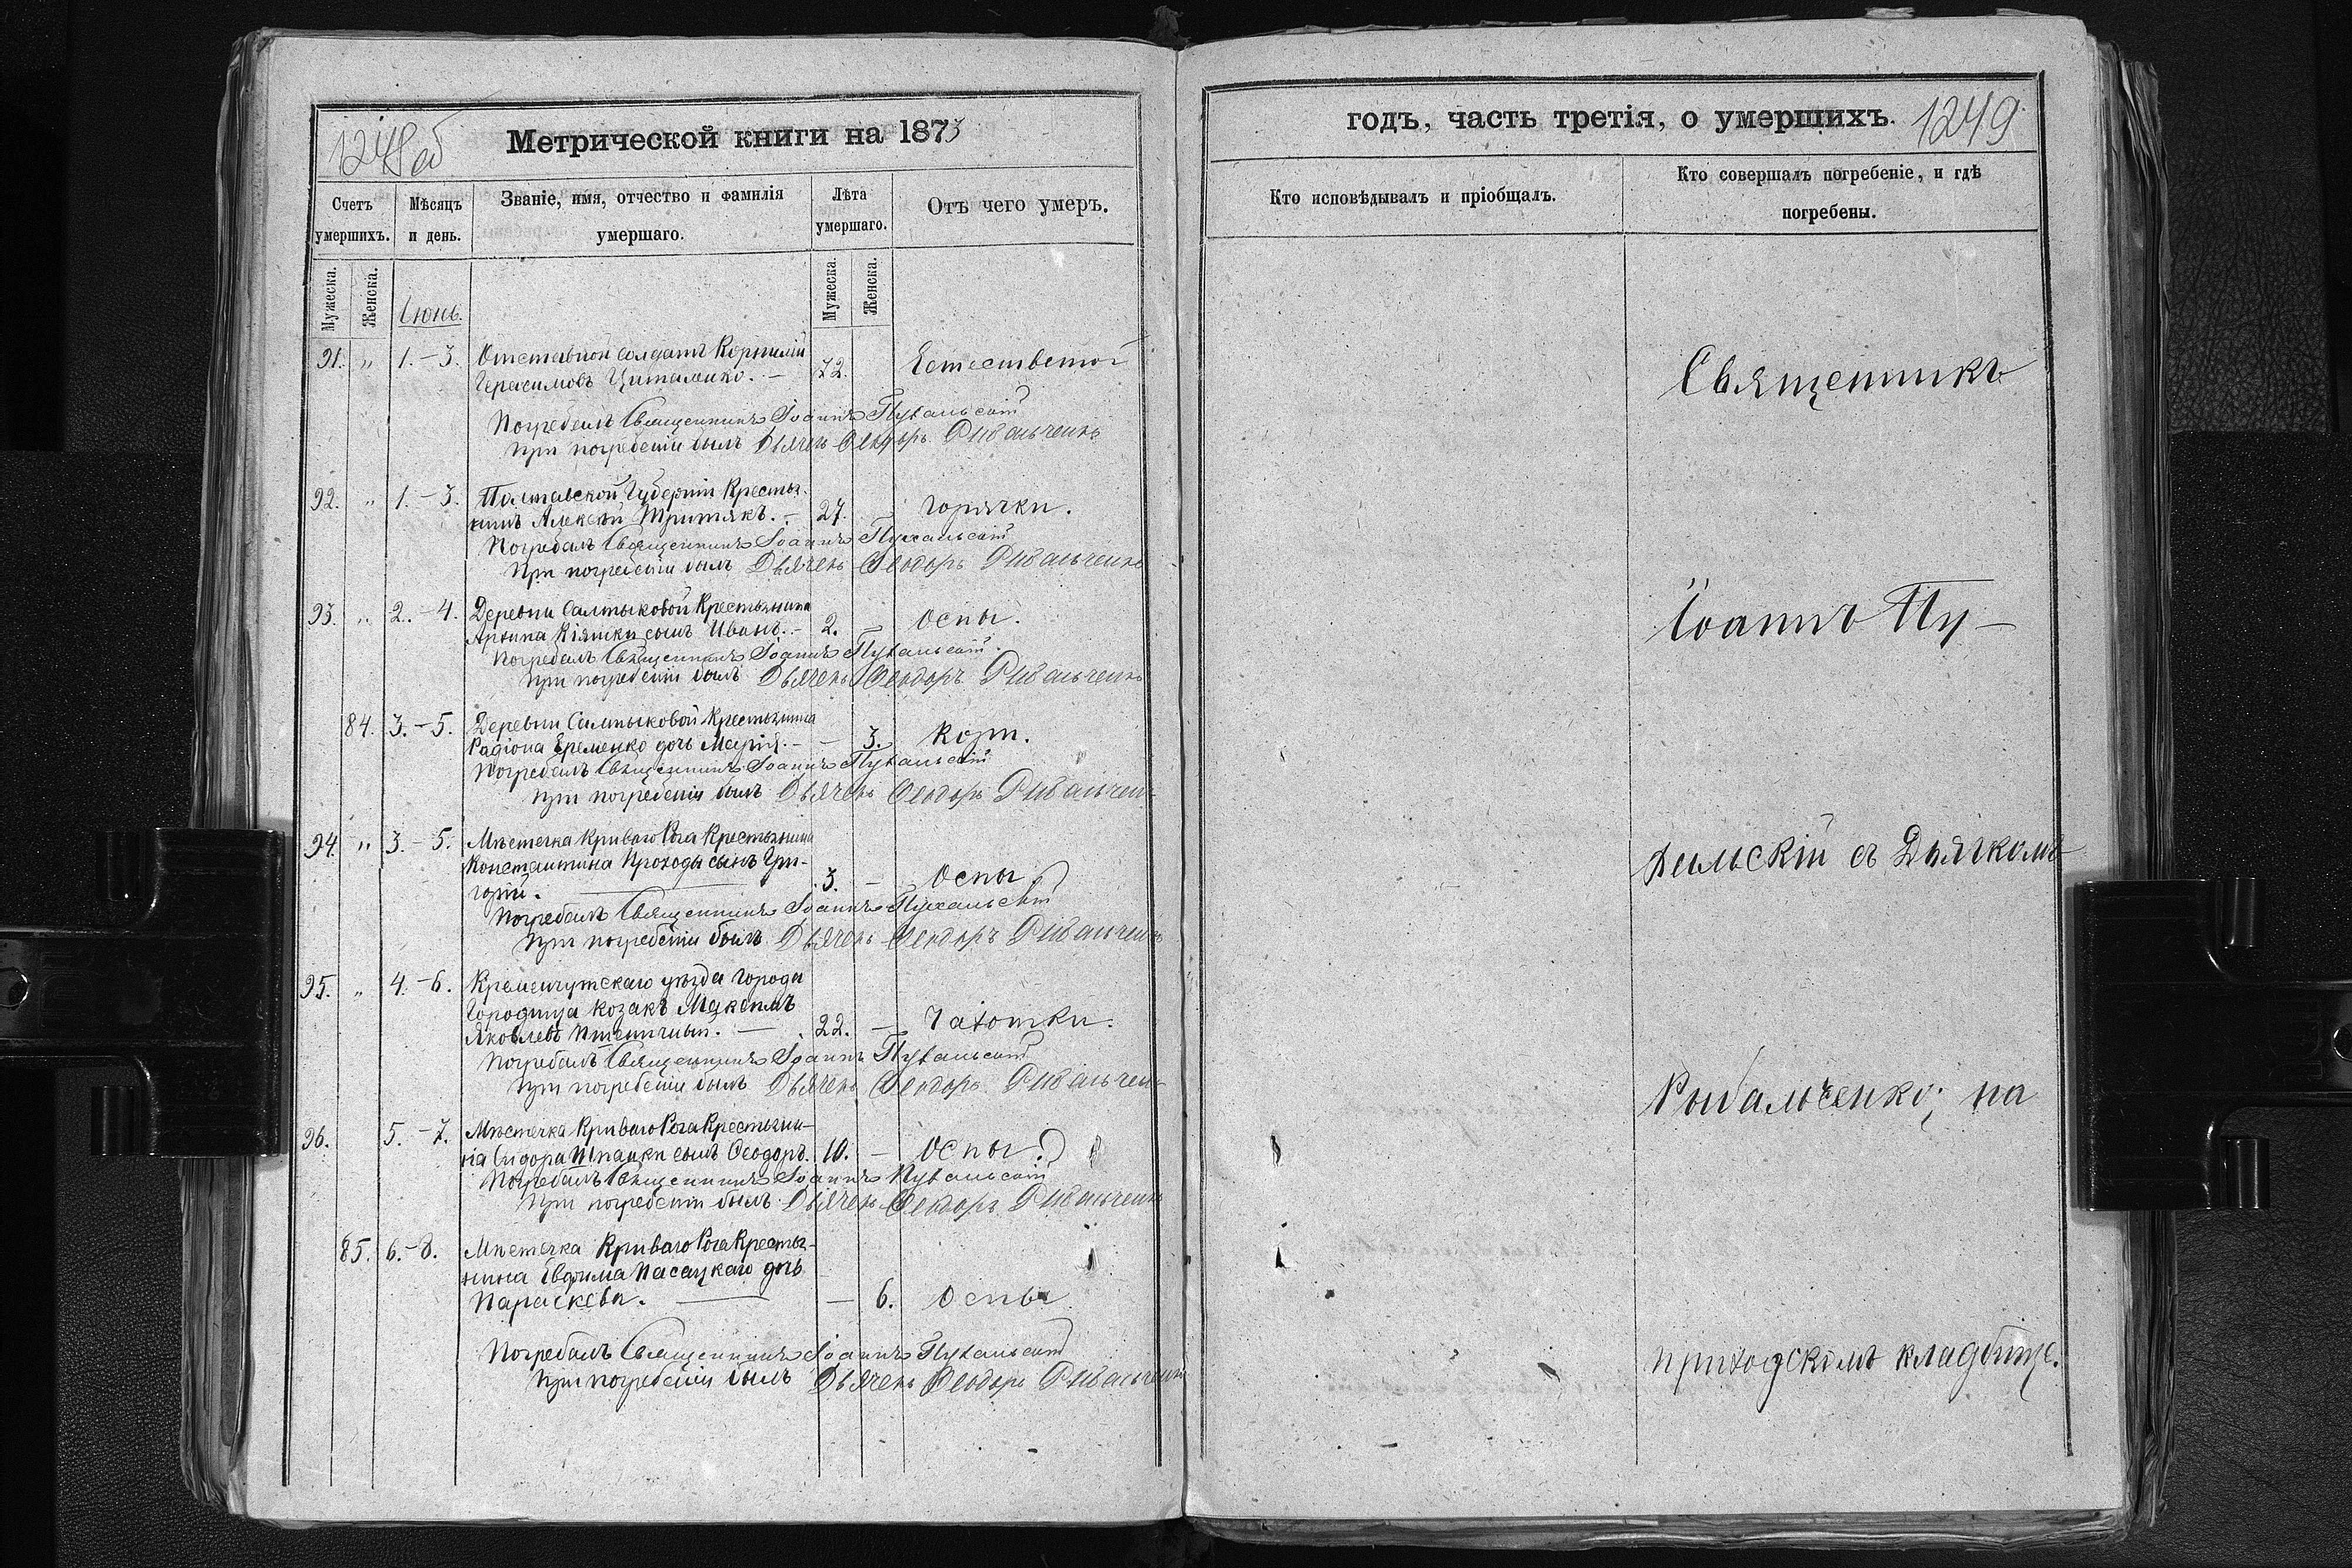 1248 об
Метрической книги на 1873
Счетъ умершихъ.
Мѣсяцъ и день.
Званіе, имя, отчество и фамилія умершаго.
Лѣта умершаго.
Отъ чего умеръ.
Мужеска.
Женска.
Іюнь.
Мужеска.
Женска.
91. „ 1.-3. Отставной солдатъ Корнилій
Герасимовъ Циталенко. — 72. Естественой
Погребалъ Священникъ Іоаннъ Пухальскій
при погребеніи былъ Дьячекъ Ѳеодоръ Рибальченко
92. „ 1.-3. Полтавской Губерніи Крестья-
нинъ Алексѣй Тритякъ. — 27. — Горячки.
Погребалъ Священникъ Іоаннъ Пухальскій
При погребеніи былъ Дьячекъ Ѳеодоръ Рибальченко
93. „ 2.-4. Деревни Салтыковой Крестьянина
Архипа Кіяшки сынъ Иванъ. — 2. — Оспы.
Погребалъ Священникъ Іоаннъ Пухальскій.
при погребеніи былъ Дьячекъ Ѳеодоръ Рибальченко
84. 3.-5. Деревни Салтыковой Крестьянина
Радіона Еременко дочь Марія. — — 3. Кори.
Погребалъ Священникъ Іоаннъ Пухальскій
при погребеніи былъ Дьячекъ Ѳеодоръ Рибальченко
94. „ 3.-5. Мѣстечка Криваго Рога Крестьянина
Константина Проходы сынъ Гри-
горій. — 3. — Оспы.
Погребалъ Священникъ Іоаннъ Пухальскій
при погребеніи былъ Дьячекъ Ѳеодоръ Рибальченко
95. „ 4.-6. Кременчугскаго уѣзда города
Городища козакъ Максимъ
Яковлевъ — 22. — Чахотки.
Погребалъ Священникъ Іоаннъ Пухальскій
при погребеніи былъ Дьячекъ Ѳеодоръ Рибальченко
96. 5.-7. Мѣстечка Криваго Рога Крестьяни-
на Сидора Шпанки сынъ Ѳеодоръ. 10. — Оспы.
Погребалъ Священникъ Іоаннъ Пухальскій
При погребеніи былъ Дьячекъ Ѳеодоръ Рибальченко
85. 6.-8. Мѣстечка Криваго Рога Крестья-
нина Евфима Пасацкаго дочь
Параскева. — — 6. Оспы
Погребалъ Священникъ Іоаннъ Пухальскій
При погребеніи былъ Дьячекъ Ѳеодоръ Рибальченко
годъ, часть третія, о умершихъ.
1249
Кто исповѣдывалъ и пріобщалъ.
Кто совершалъ погребеніе, и гдѣ
погребены.
Священникъ
Іоаннъ Пу-
хальскій съ Дьячкомъ
Рыбальченко; на
приходскомъ кладбище.